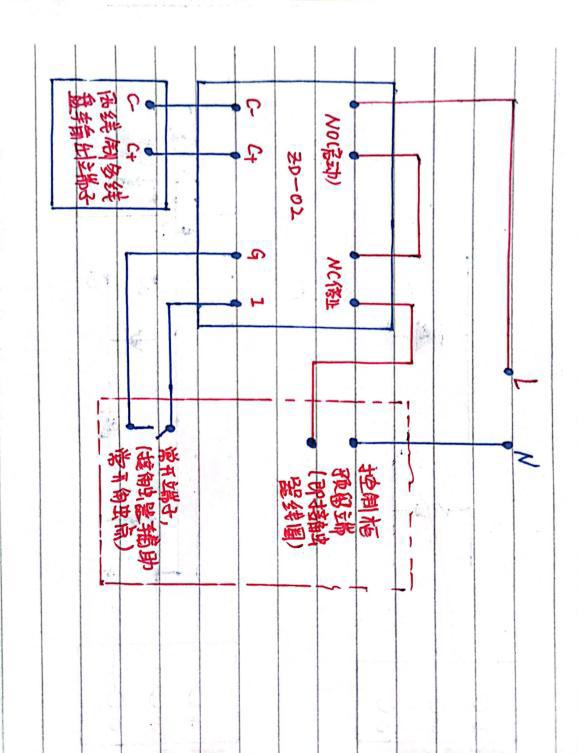 L
N
NO(启动)
NC停止
ZD-02
C-
C+
G
I
C-
C+
两线制多线
盘输出端子
控制柜
预留端
(即接触
器线圈)
常开端子,
(接触器辅助
常开触点)